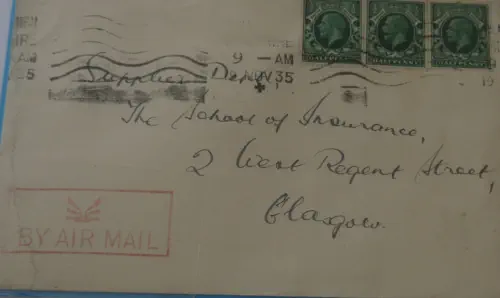 9 — AM
2 NOV 35
HALFPENNY HALFPENNY HALFPENNY
Supplies Dept.
The School of Insurance,
2 West Regent Street,
Glasgow.
BY AIR MAIL